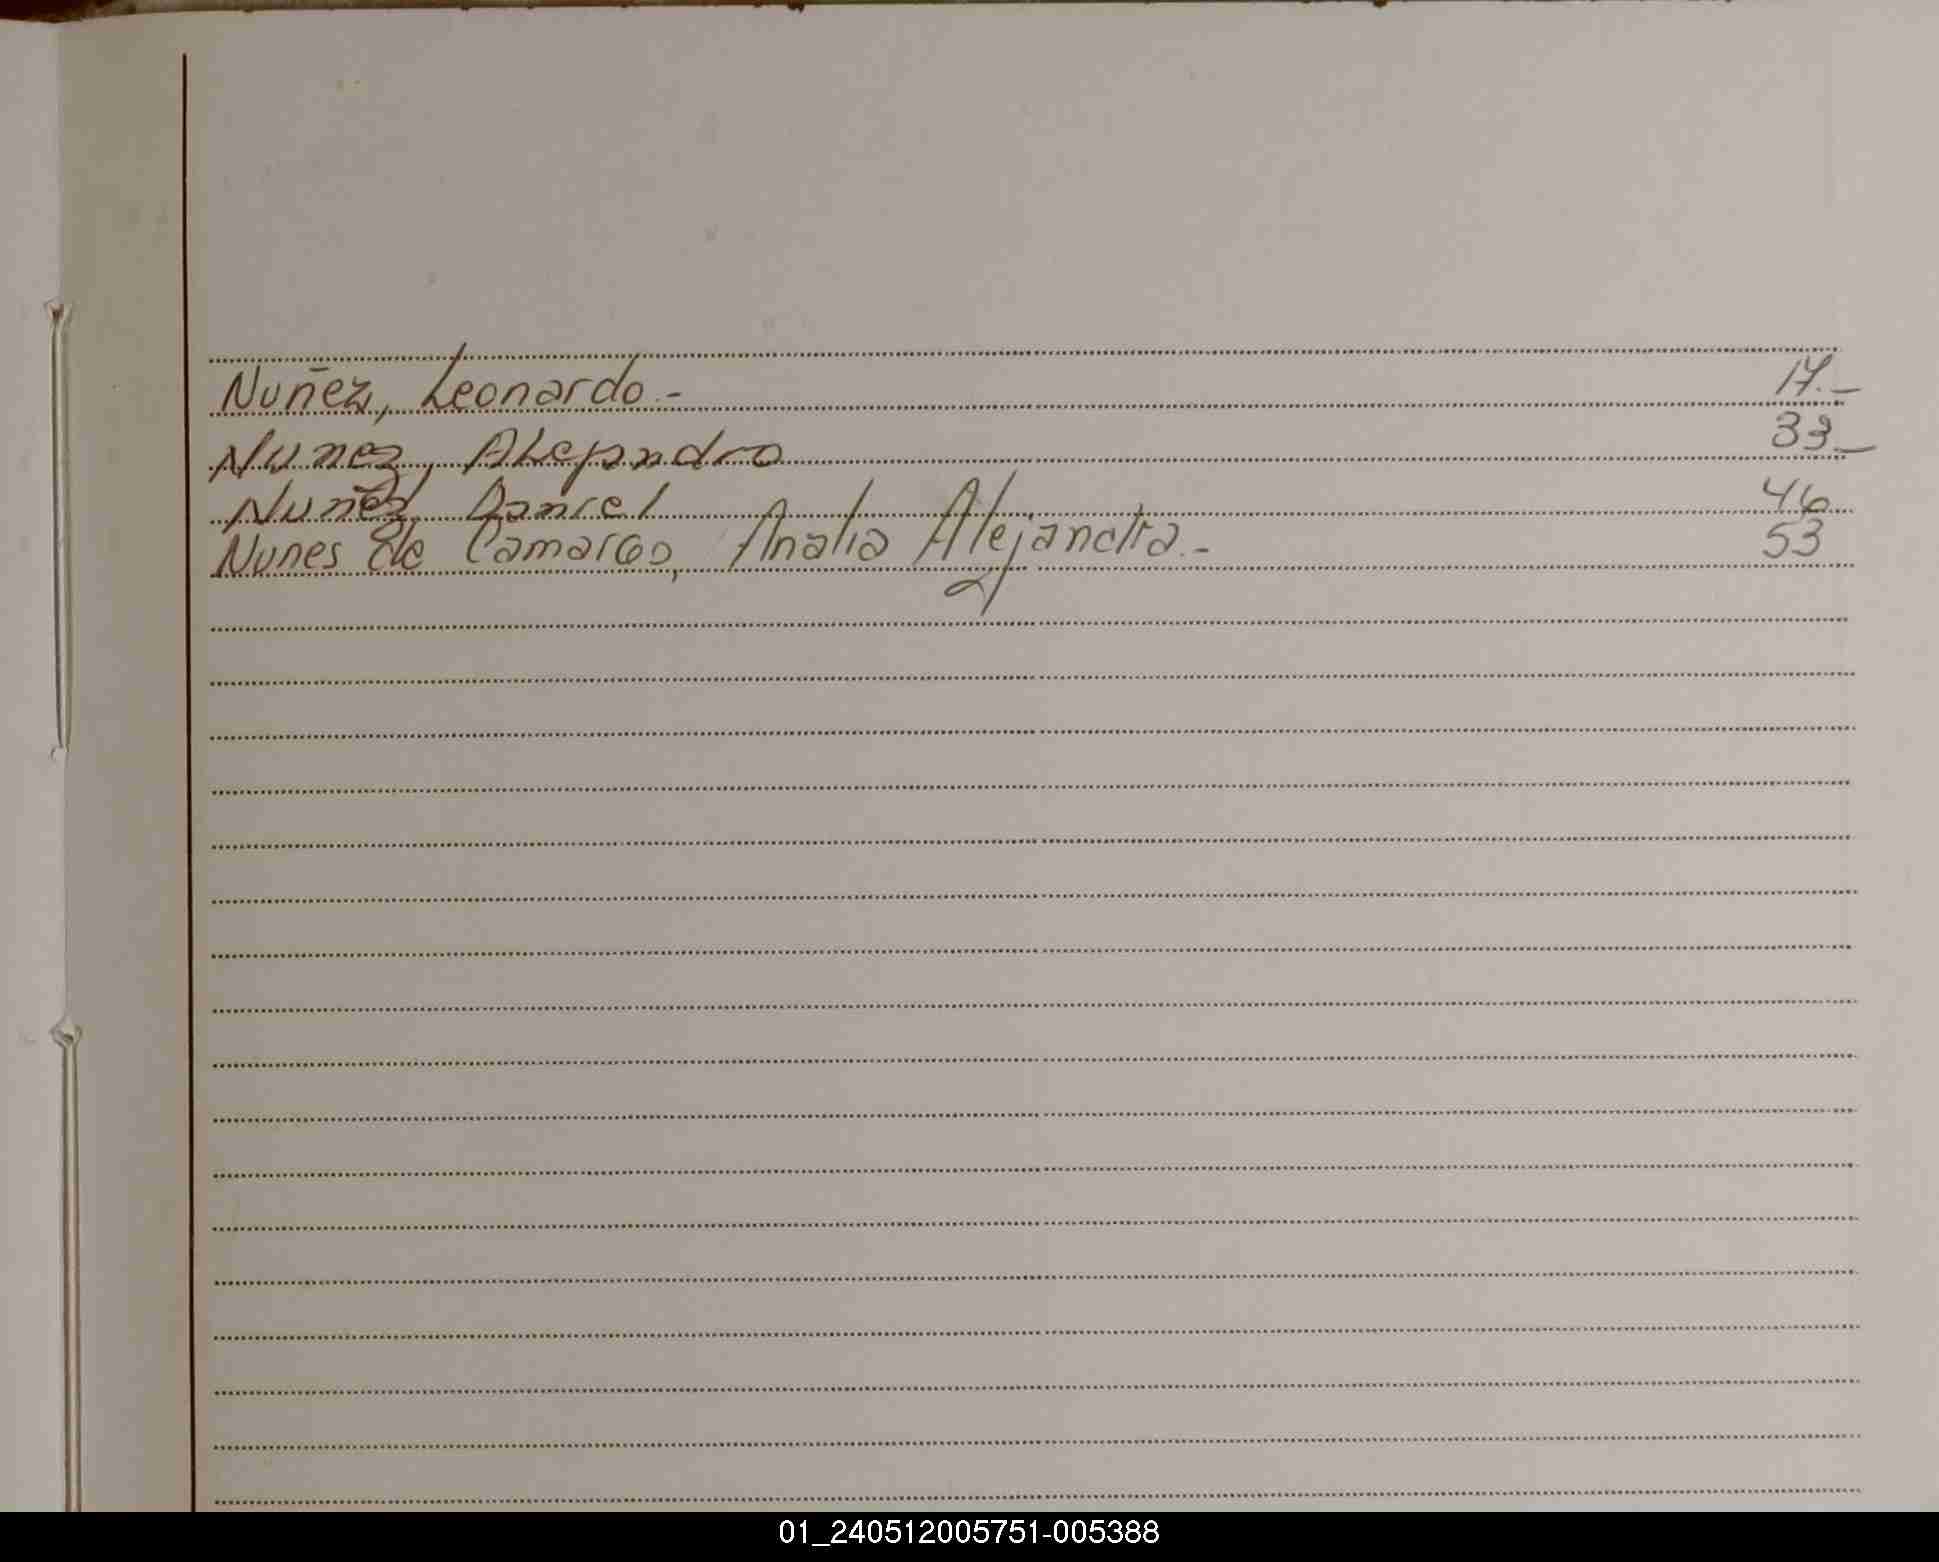 Nuñez, Leonardo.- 17.-
Nunez, Alejandro 33-
Nuñez, Daniel 46
Nunes de Camargo, Analia Alejandra.- 53
01_240512005751-005388